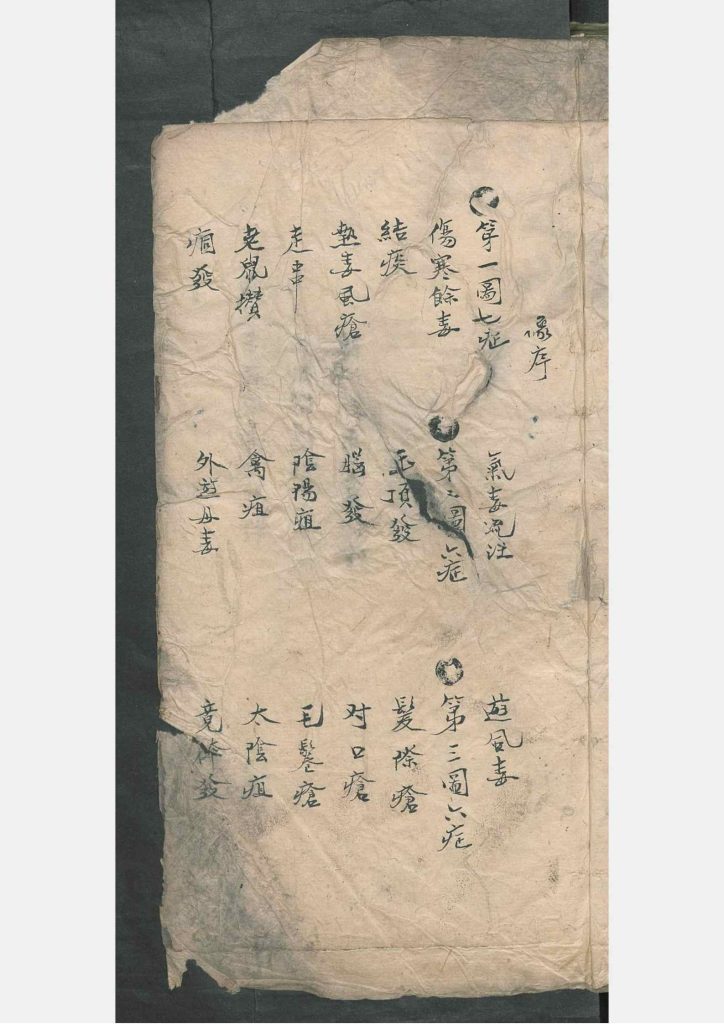 像序
第一圖七症
傷寒餘毒
結痰
熱毒風瘡
走串
老鼠攢
痼發
氣毒流注
第二圖六症
毛頂發
腦發
陰陽疽
禽疽
外遊丹毒
遊風毒
第三圖六症
髮際瘡
对口瘡
毛鬈瘡
太陰疽
竟体發